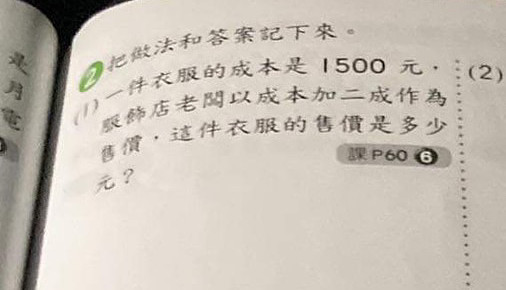 是
月
電
2 把做法和答案記下來。
(1) 一件衣服的成本是 1500 元，
服飾店老闆以成本加二成作為
售價，這件衣服的售價是多少
元？
課P60 6
(2)